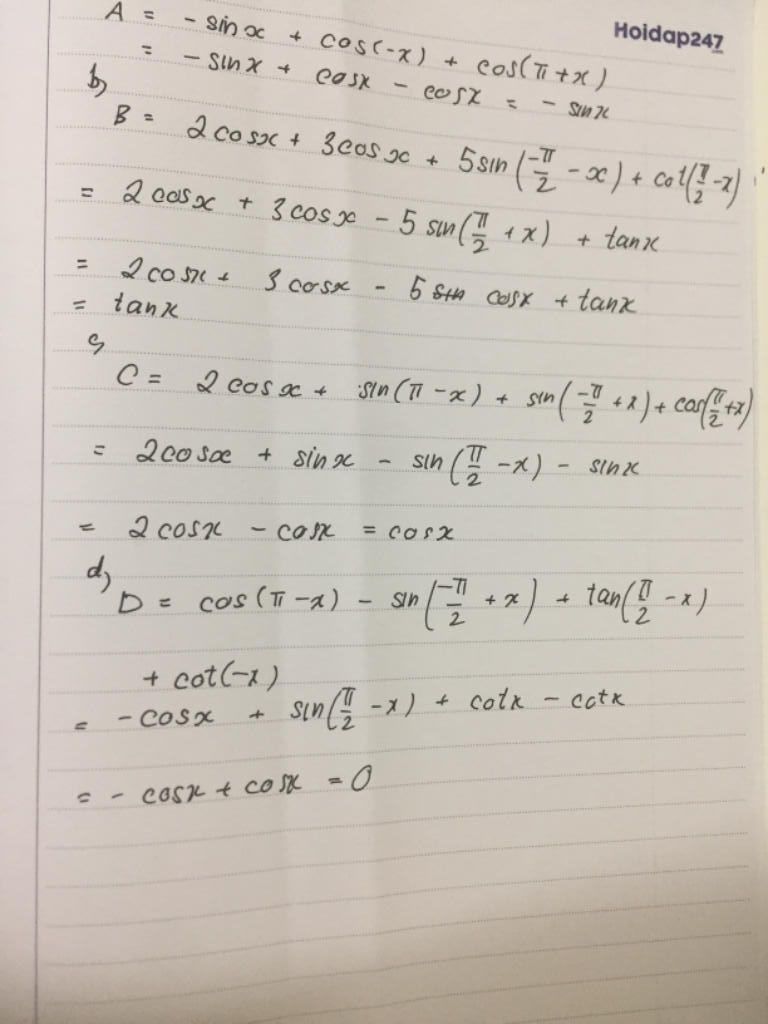 Hoidap247
A = - sinx + cos(-x) + cos(π+x)
= - sinx + cosx - cosx = - sinx
b)
B = 2cosx + 3cosx + 5sin(-π/2 - x) + cot(π/2 - x)
= 2cosx + 3cosx - 5 sin(π/2 + x) + tanx
= 2cosx + 3cosx - 5 sin cosx + tanx
= tanx
c)
C = 2cosx + sin(π - x) + sin(-π/2 + x) + cos(π/2 + x)
= 2cosx + sinx - sin(π/2 - x) - sinx
= 2cosx - cosx = cosx
d)
D = cos(π - x) - sin(-π/2 + x) + tan(π/2 - x)
+ cot(-x)
= - cosx + sin(π/2 - x) + cotx - cotx
= - cosx + cosx = 0